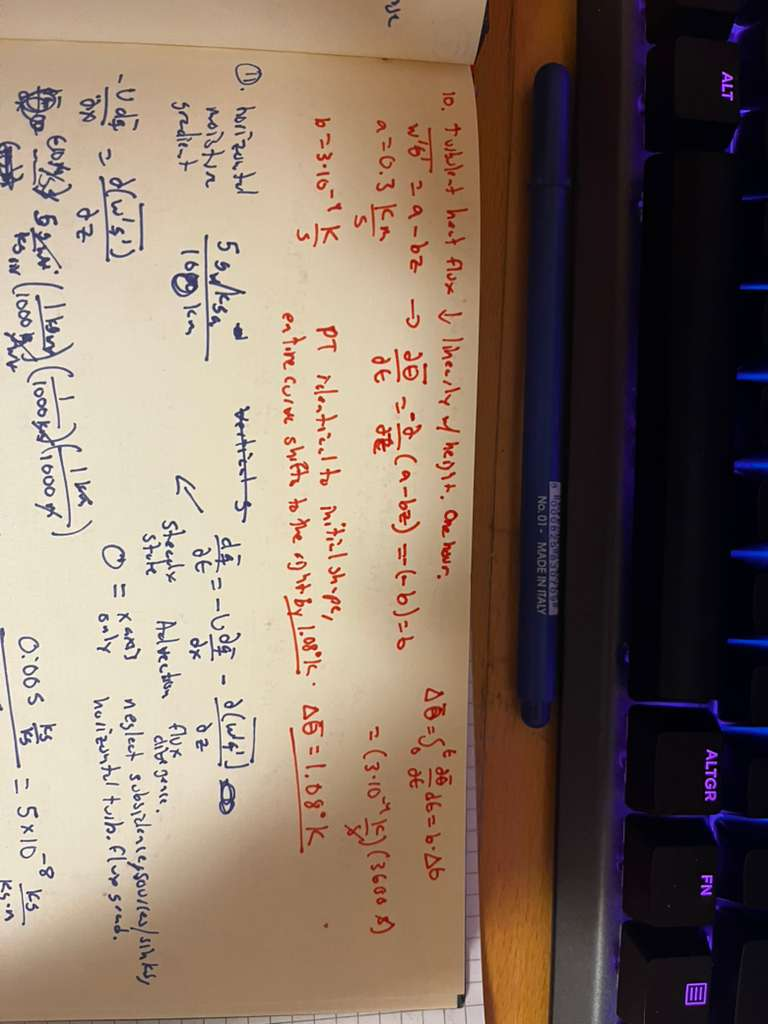 10. turbulent heat flux ↓ linearly w/ height. One hour.
w'θ' = a - bz → ∂θ/∂t = -∂/∂z (a - bz) = -(-b) = b
a = 0.3 K m/s
b = 3·10⁻⁴ K/s
Δθ = ∫₀ᵗ ∂θ/∂t dt = b·Δt
= (3·10⁻⁴ K/s)(3600 s)
PT identical to initial shape,
entire curve shifts to the right by 1.08°K. Δθ = 1.08°K
11. horizontal
moisture
gradient
5 gw/kga
1000 km
vertical
∂q/∂t = -U ∂q/∂x - ∂(w'q')/∂z
steady
state
Advection
flux
divergence.
0 = x axis
only
neglect subsidence, sources/sinks,
horizontal turb. flux grad.
-U ∂q/∂x = ∂(w'q')/∂z
0.005 kg/kg = 5×10⁻⁸ kg/kg·m
No. 01 - MADE IN ITALY
ALT
ALTGR
FN